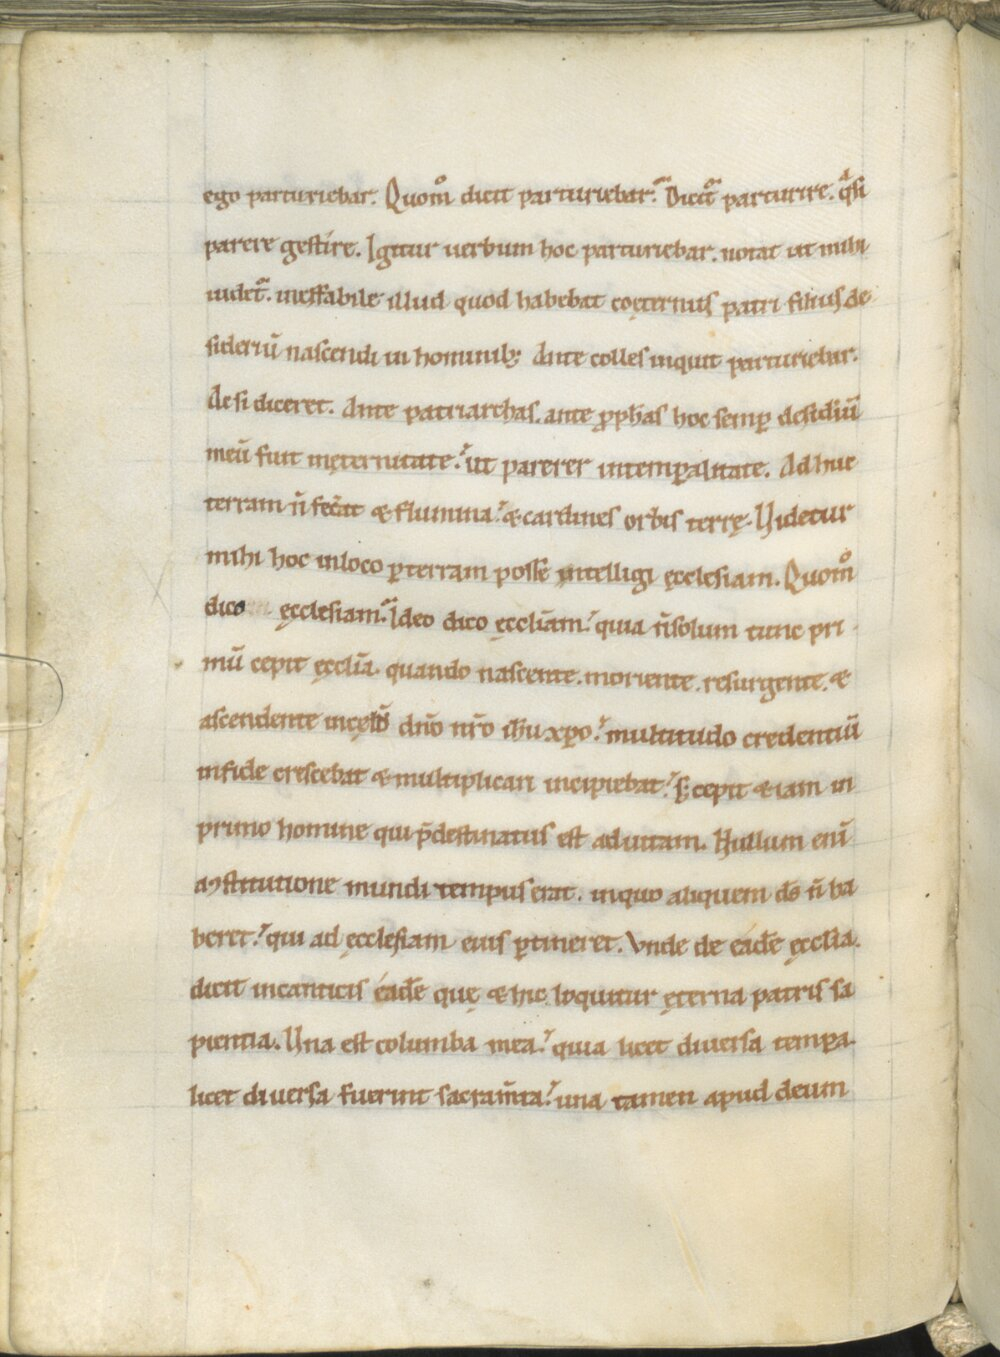 ego parturiebar. Quom̊ dicit parturiebar? Dicit᷑ parturire. qͣsi
parere gestire. Igitur uerbum hoc parturiebar. notat ut mihi
uidet᷑. ineffabile illud quod habebat coęternus patri filius de
sideriū nascendi in hominib; Ante colles inquit parturiebar.
Ac si diceret. Ante patriarchas. ante ꝓph̄as hoc semꝑ desid̾iū
meū fuit in ęternitate. ut parerer in temꝑalitate. Adhuc
terram n̄ fec̾at & flumina. & cardines orbis terrę. Videtur
mihi hoc in loco ꝑ terram posse intelligi ęcclesiam. Quom̊
dico ęcclesiam? Ideo dico ęccl̄iam. quia n̄ solum tunc pri
mū cepit ęccl̄ia. quando nascente. moriente. resurgente. &
ascendente in cęlū dn̄o nr̄o ih̄u xp̄o. multitudo credentiū
in fide crescebat & multiplicari incipiebat. s; cepit & iam in
primo homine qui p̄destinatus est ad uitam. Nullum eni̅
a ꝯstitutione mundi tempus erat. in quo aliquem ds̄ n̄ ha
beret. qui ad ęcclesiam eius ꝑtineret. Vnde de eadē ęccl̄ia.
dicit in canticis eadē quę & hic loquitur ęterna patris sa
pientia. Vna est columba mea. quia licet diuersa tempora.
licet diuersa fuerint sacram̄ta. una tamen apud deum